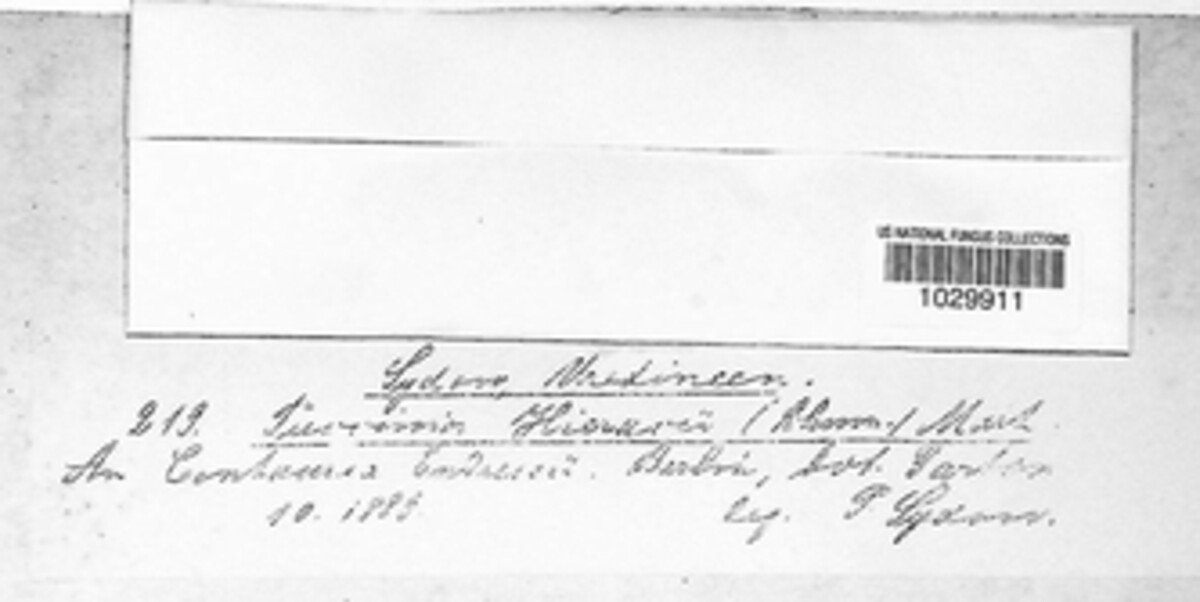 US NATIONAL FUNGUS COLLECTIONS
1029911
Sydow, Uredineen.
219. Puccinia Hieracii (Schum.) Mart
An Centaurea Endressii. Berlin, bot. Garten
10. 1885 leg. P Sydow.